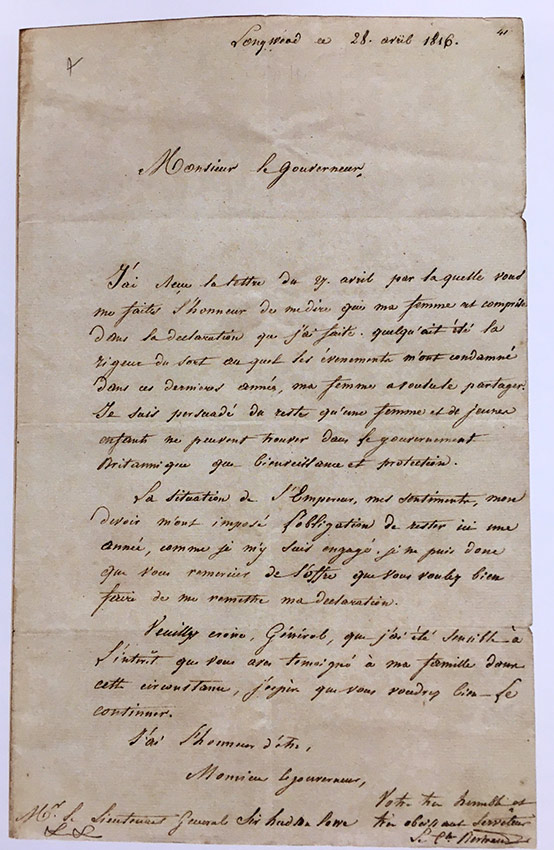 41
Longwood ce 28. avril 1816.
Monsieur le gouverneur,
J'ai reçu la lettre du 27. avril par laquelle vous
me faites l'honneur de me dire que ma femme est comprise
dans la declaration que j'ai faite. quelqu'ait été la
rigueur du sort au quel les évenements m'ont condamné
dans ces dernieres années, ma femme a voulu le partager.
Je suis persuadé du reste qu'une femme et de jeunes
enfants ne peuvent trouver dans le gouvernement
Britannique que bienveillance et protection.
La situation de l'Empereur, mes sentiments, mon
devoir m'ont imposé l'obligation de rester ici une
année, comme je m'y suis engagé. je ne puis donc
que vous remercier de l'offre que vous voulez bien
faire de me remettre ma declaration.
Veuillez croire, Général, que j'ai été sensible à
l'intérêt que vous avez temoigné à ma famille dans
cette circonstance, j'espère que vous voudrez bien le
continuer.
J'ai l'honneur d'être,
Monsieur le gouverneur,
Votre très humble et
très obeissant Serviteur
Le Cte Bertrand
Mr. le Lieutenant General Sir hudson Lowe